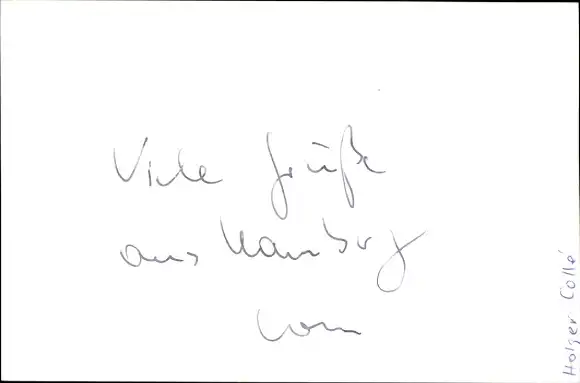 Viele Grüße
aus Hamburg
vom
Holger Collé